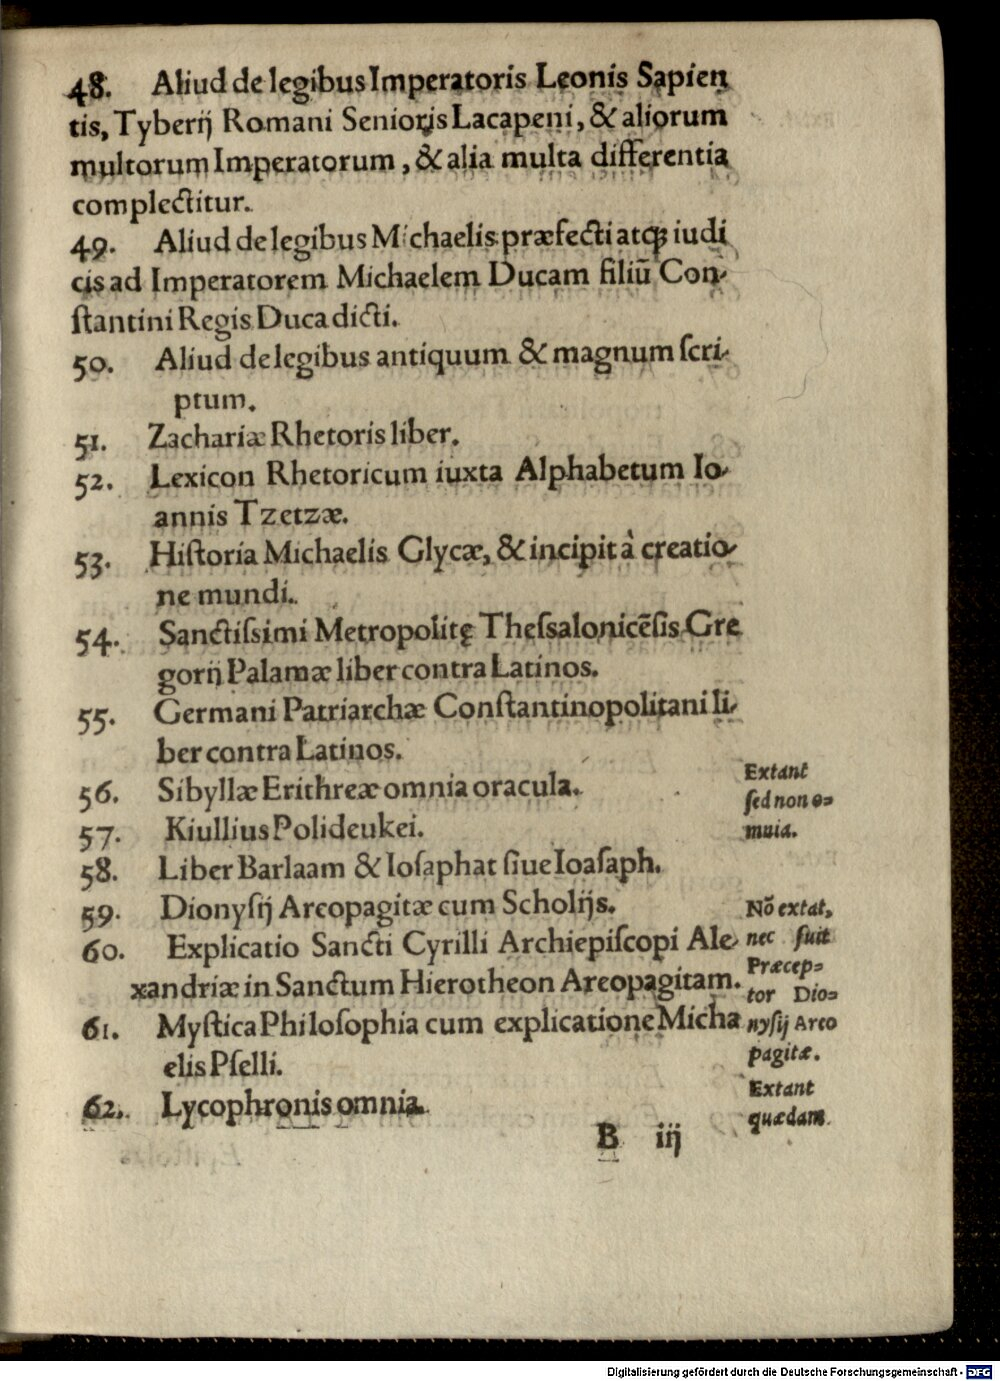 48. Aliud de legibus Imperatoris Leonis Sapien
tis, Tyberij Romani Senioris Lacapeni, & aliorum
multorum Imperatorum, & alia multa differentia
complectitur.
49. Aliud de legibus Michaelis præfecti atqꝫ iudi
cis ad Imperatorem Michaelem Ducam filiū Con-
ſtantini Regis Duca dicti.
50. Aliud de legibus antiquum & magnum ſcri-
ptum.
51. Zachariæ Rhetoris liber.
52. Lexicon Rhetoricum iuxta Alphabetum Io-
annis Tzetzæ.
53. Hiſtoria Michaelis Glycæ, & incipit à creatio-
ne mundi.
54. Sanctiſsimi Metropolitę Theſsalonicēſis Gre
gorij Palamæ liber contra Latinos.
55. Germani Patriarchæ Conſtantinopolitani li-
ber contra Latinos.
56. Sibyllæ Erithreæ omnia oracula.
Extant
ſed non o=
mnia.
57. Kiullius Polideukei.
58. Liber Barlaam & Ioſaphat ſiue Ioaſaph.
59. Dionyſij Areopagitæ cum Scholijs.
60. Explicatio Sancti Cyrilli Archiepiſcopi Ale-
xandriæ in Sanctum Hierotheon Areopagitam.
Nō extat,
nec fuit
Præcep=
tor Dio=
nyſij Areo
pagitæ.
61. Myſtica Philoſophia cum explicatione Micha
elis Pſelli.
62. Lycophronis omnia.
Extant
quædam.
B iij
Digitalisierung gefördert durch die Deutsche Forschungsgemeinschaft - DFG